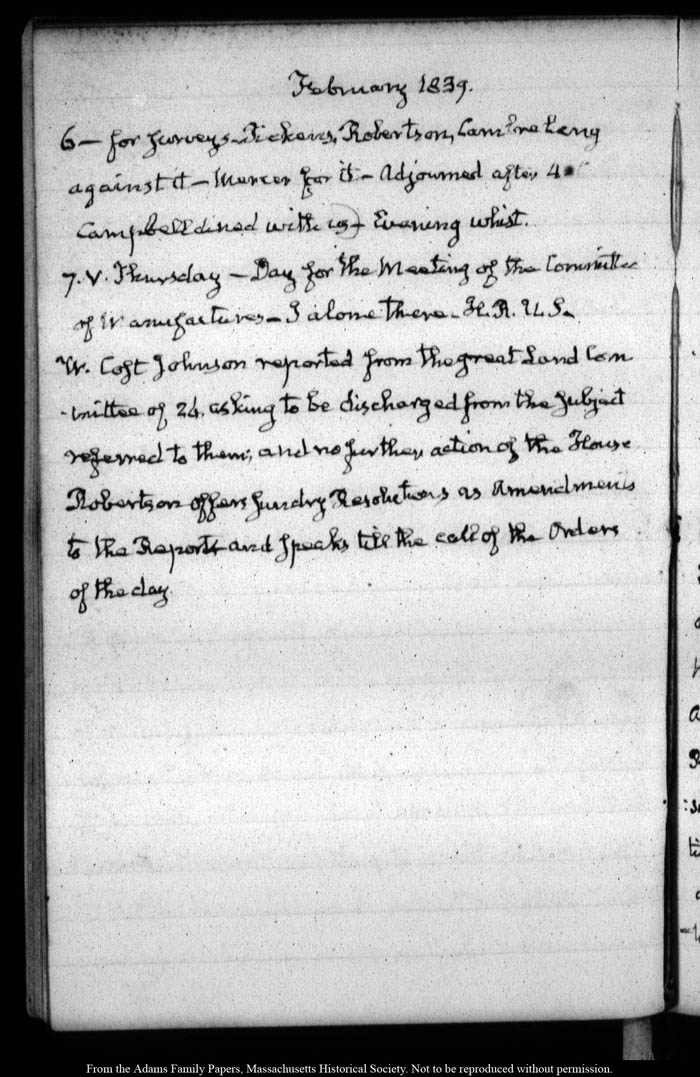 February 1839.
6 — for surveys. Pickens, Robertson, Cambreleng
against it — Mercer for it — Adjourned after 4
Campbell dined with us — Evening whist.
7. V. Thursday — Day for the Meeting of the Committee
of Manufactures — I alone there — H. R. U. S.
W. Cost Johnson reported from the great Land Com
-mittee of 24. asking to be discharged from the subject
referred to them; and no further action of the House
Robertson offers sundry Resolutions as Amendments
to the Report and speaks till the call of the Orders
of the day.
From the Adams Family Papers, Massachusetts Historical Society. Not to be reproduced without permission.